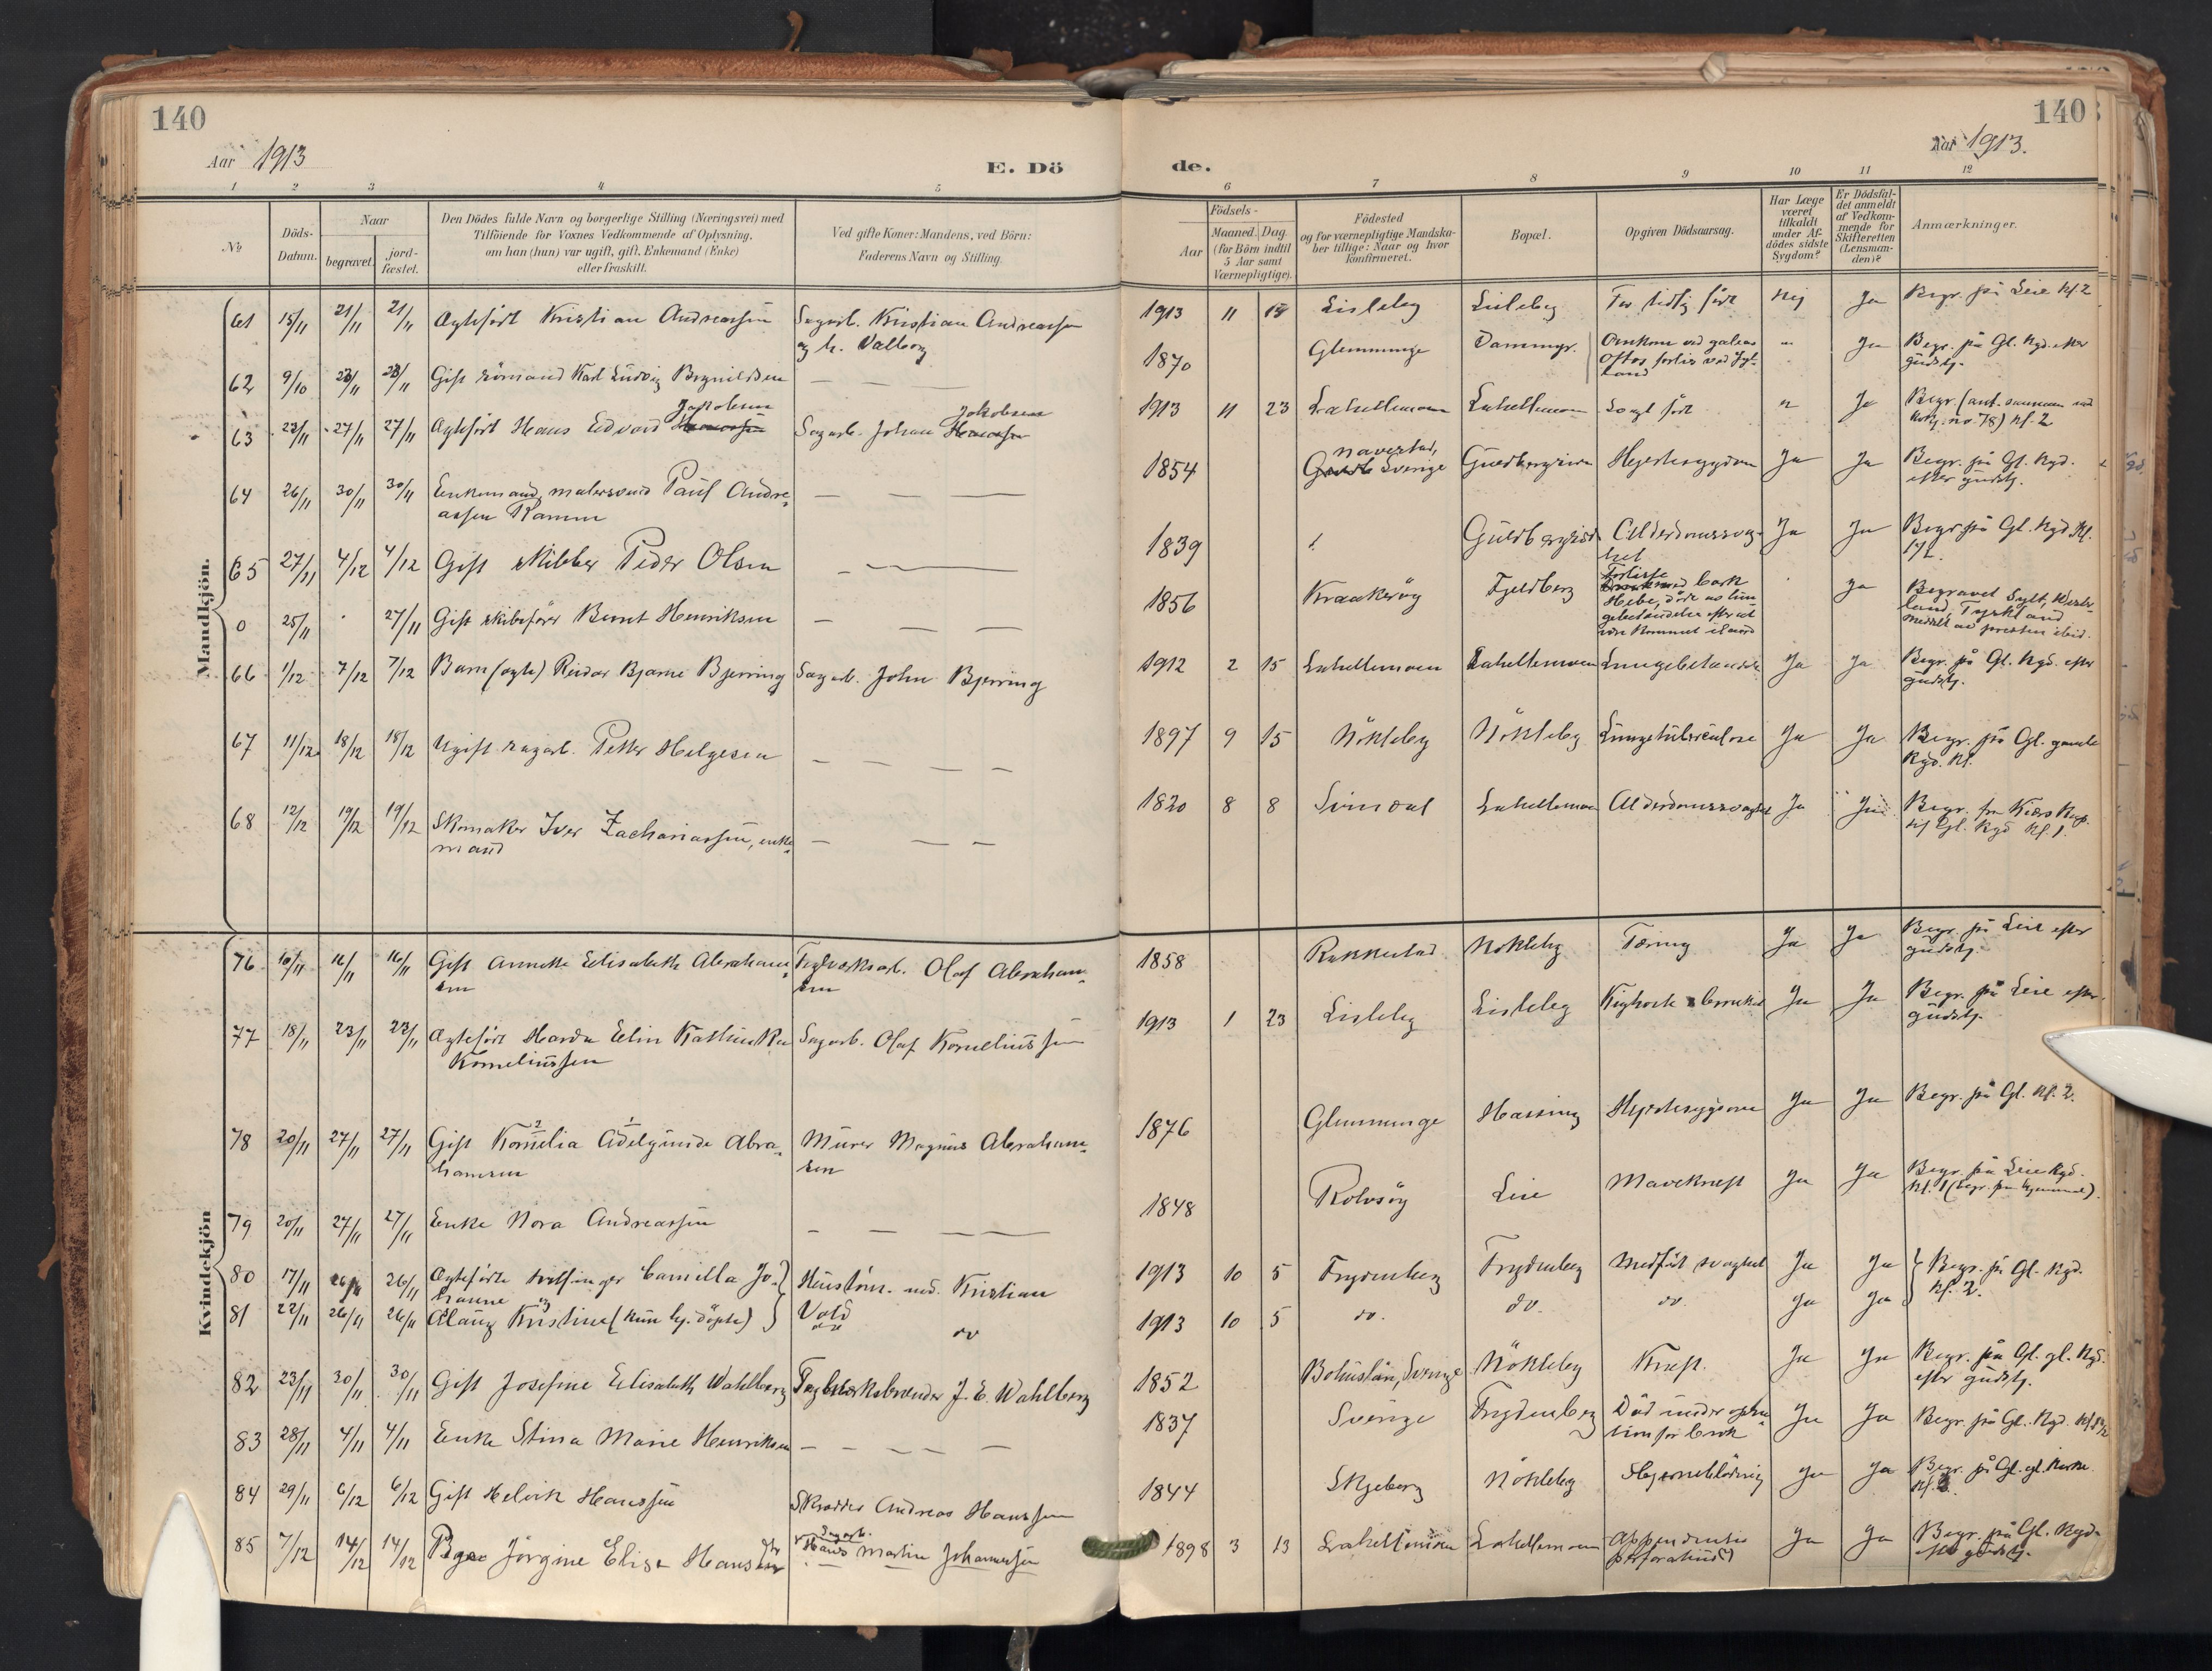 140
Aar 1913
E. Dö
1 2 3 4 5
No
Döds-
Datum.
Naar
begravet.
jord-
fæstet.
Den Dödes fulde Navn og borgerlige Stilling (Næringsvei) med
Tilföiende for Voxnes Vedkommende af Oplysning,
om han (hun) var ugift, gift, Enkemand (Enke)
eller fraskilt.
Ved gifte Koner: Mandens, ved Börn:
Faderens Navn og Stilling.
Mandkjön.
61 15/11 21/11 21/11 Ægtefödt Kristian Andreassen Sagarb. Kristian Andreassen
og h. Valborg
62 9/10 23/11 23/11 Gift sömand Karl Ludvig Brynildsen — — —
Jakobsen Jakobsen
63 23/11 27/11 27/11 Ægtefödt Hans Edvard Sagarb. Johan
64 26/11 30/11 30/11 Enkemand, malersvend Paul Andre-
assen Ramm — — —
65 27/11 4/12 4/12 Gift skibber Peder Olsen — —
0 25/11 27/11 Gift skibsförer Bernt Henriksen — — —
66 1/12 7/12 7/12 Barn (ægte) Reidar Bjarne Bjerring Sagarb. John Bjerring
67 11/12 18/12 18/12 Ugift sagarb. Petter Helgesen — — — —
68 12/12 19/12 19/12 Skomaker Iver Zachariassen, enke-
mand — — —
Kvindekjön
76 10/11 16/11 16/11 Gift Annette Elisabeth Abraham-
sen Teglverksarb. Olaf Abraham-
sen
77 18/11 23/11 23/11 Ægtefödt Harda Elin Kathinka Sagarb. Olaf Korneliussen
Korneliussen
78 20/11 27/11 27/11 Gift Kornelia Adelgunde Abra-
hamsen Murer Magnus Abraham-
sen
79 20/11 27/11 27/11 Enke Nora Andreassen — — — —
80 17/11 26/11 26/11 Ægtefödte tvillinger Camilla Jo-
hanne og Kristian
81 22/11 26/11 26/11 Kristine (kun hj. döpte) Vold
do
82 23/11 30/11 30/11 Gift Josefine Elisabeth Wahlberg Teglverksbrænder J. E. Wahlberg
83 28/11 4/11 4/11 Enke Stina Marie Henriksen — — — —
84 29/11 6/12 6/12 Gift Helvik Hanssen Skrædder Andreas Hanssen
85 7/12 14/12 14/12 Pige Jörgine Elise Hans Sagarb.
Hans Martin Johannessen
140
de.
Aar 1913.
6 7 8 9 10 11 12
Födsels-
Aar
Maaned. Dag.
(for Börn indtil
5 Aar samt
Værnepligtige).
Födested
og for værnepligtige Mandska-
ber tillige: Naar og hvor
konfirmeret.
Bopæl.
Opgiven Dödsaarsag.
Har Læge
været
tilkaldt
under Af-
dödes sidste
Sygdom?
Er Dödsfal-
det anmeldt
af Vedkom-
mende for
Skifteretten
(Lensman-
den)?
Anmærkninger.
1913 11 Lisleby Lisleby For tidlig födt Nej Ja Begr. på Leie kl 2
1870 Glemminge Omkom ved galeas
forlis ved Jyl-
land Ja Begr. på Gl. kgd. efter
gudstj.
1913 11 23 Lahellemoen Lahellemoen födt Ja Begr.
no. 78) kl. 2
Navestad,
1854 Sverige Hjertesygdom Ja Ja Begr. på Gl. kgd.
efter gudstj.
1839 ! Alderdomssvag-
het Ja Ja Begr på Gl. kgd kl.
1856 Kraakeröy Fjeldberg Forliste
bark
Hebe, döde av lun-
gebetændelse efter at
være kommet iland Ja Begravet Sylt, Wester-
land, Tyskland
meddelt av presten ibid.
1912 2 15 Lahellemoen Lahellemoen Lungebetændelse Ja Ja Begr. på Gl. kgd. efter
gudstj.
1897 9 15 Nökleby Nökleby Lungetuberculose Ja Ja Begr. på Gl. gamle
kgd. kl.
1820 8 8 Lahellemoen Alderdomssvaghet Ja Ja Begr. fra
Gl. kgd kl. 1.
1858 Rakkestad Nökleby Tæring Ja Ja Begr. på Leie efter
gudstj.
1913 1 23 Lisleby Lisleby Kighoste Ja Ja Begr. på Leie efter
gudstj.
1876 Glemminge Hassing Hjertesygdom Ja Ja Begr. på Gl. kl. 2.
1848 Rolvsöy Leie Mavekræft Ja Ja Begr. på Leie kgd.
kl. 1
1913 10 5 Frydenberg Frydenberg Medfödt svaghet Ja Ja Begr. på Gl. kgd.
kl. 2.
1913 10 5 do. do. do. Ja Ja
1852 Bohuslän, Sverige Nökleby Kræft. Ja Ja Begr. på Gl. gl. kgd.
efter gudstj.
1837 Sverige Frydenberg Död under opera-
tion for brok Ja Ja Begr. på Gl. kgd.
1844 Skjeberg Nökleby Hjerneblödning Ja Ja Begr. på Gl. gl. kirke.
1898 3 13 Lahellemoen Lahellemoen Ja Ja Begr. på Gl. kgd.
efter gudstj.